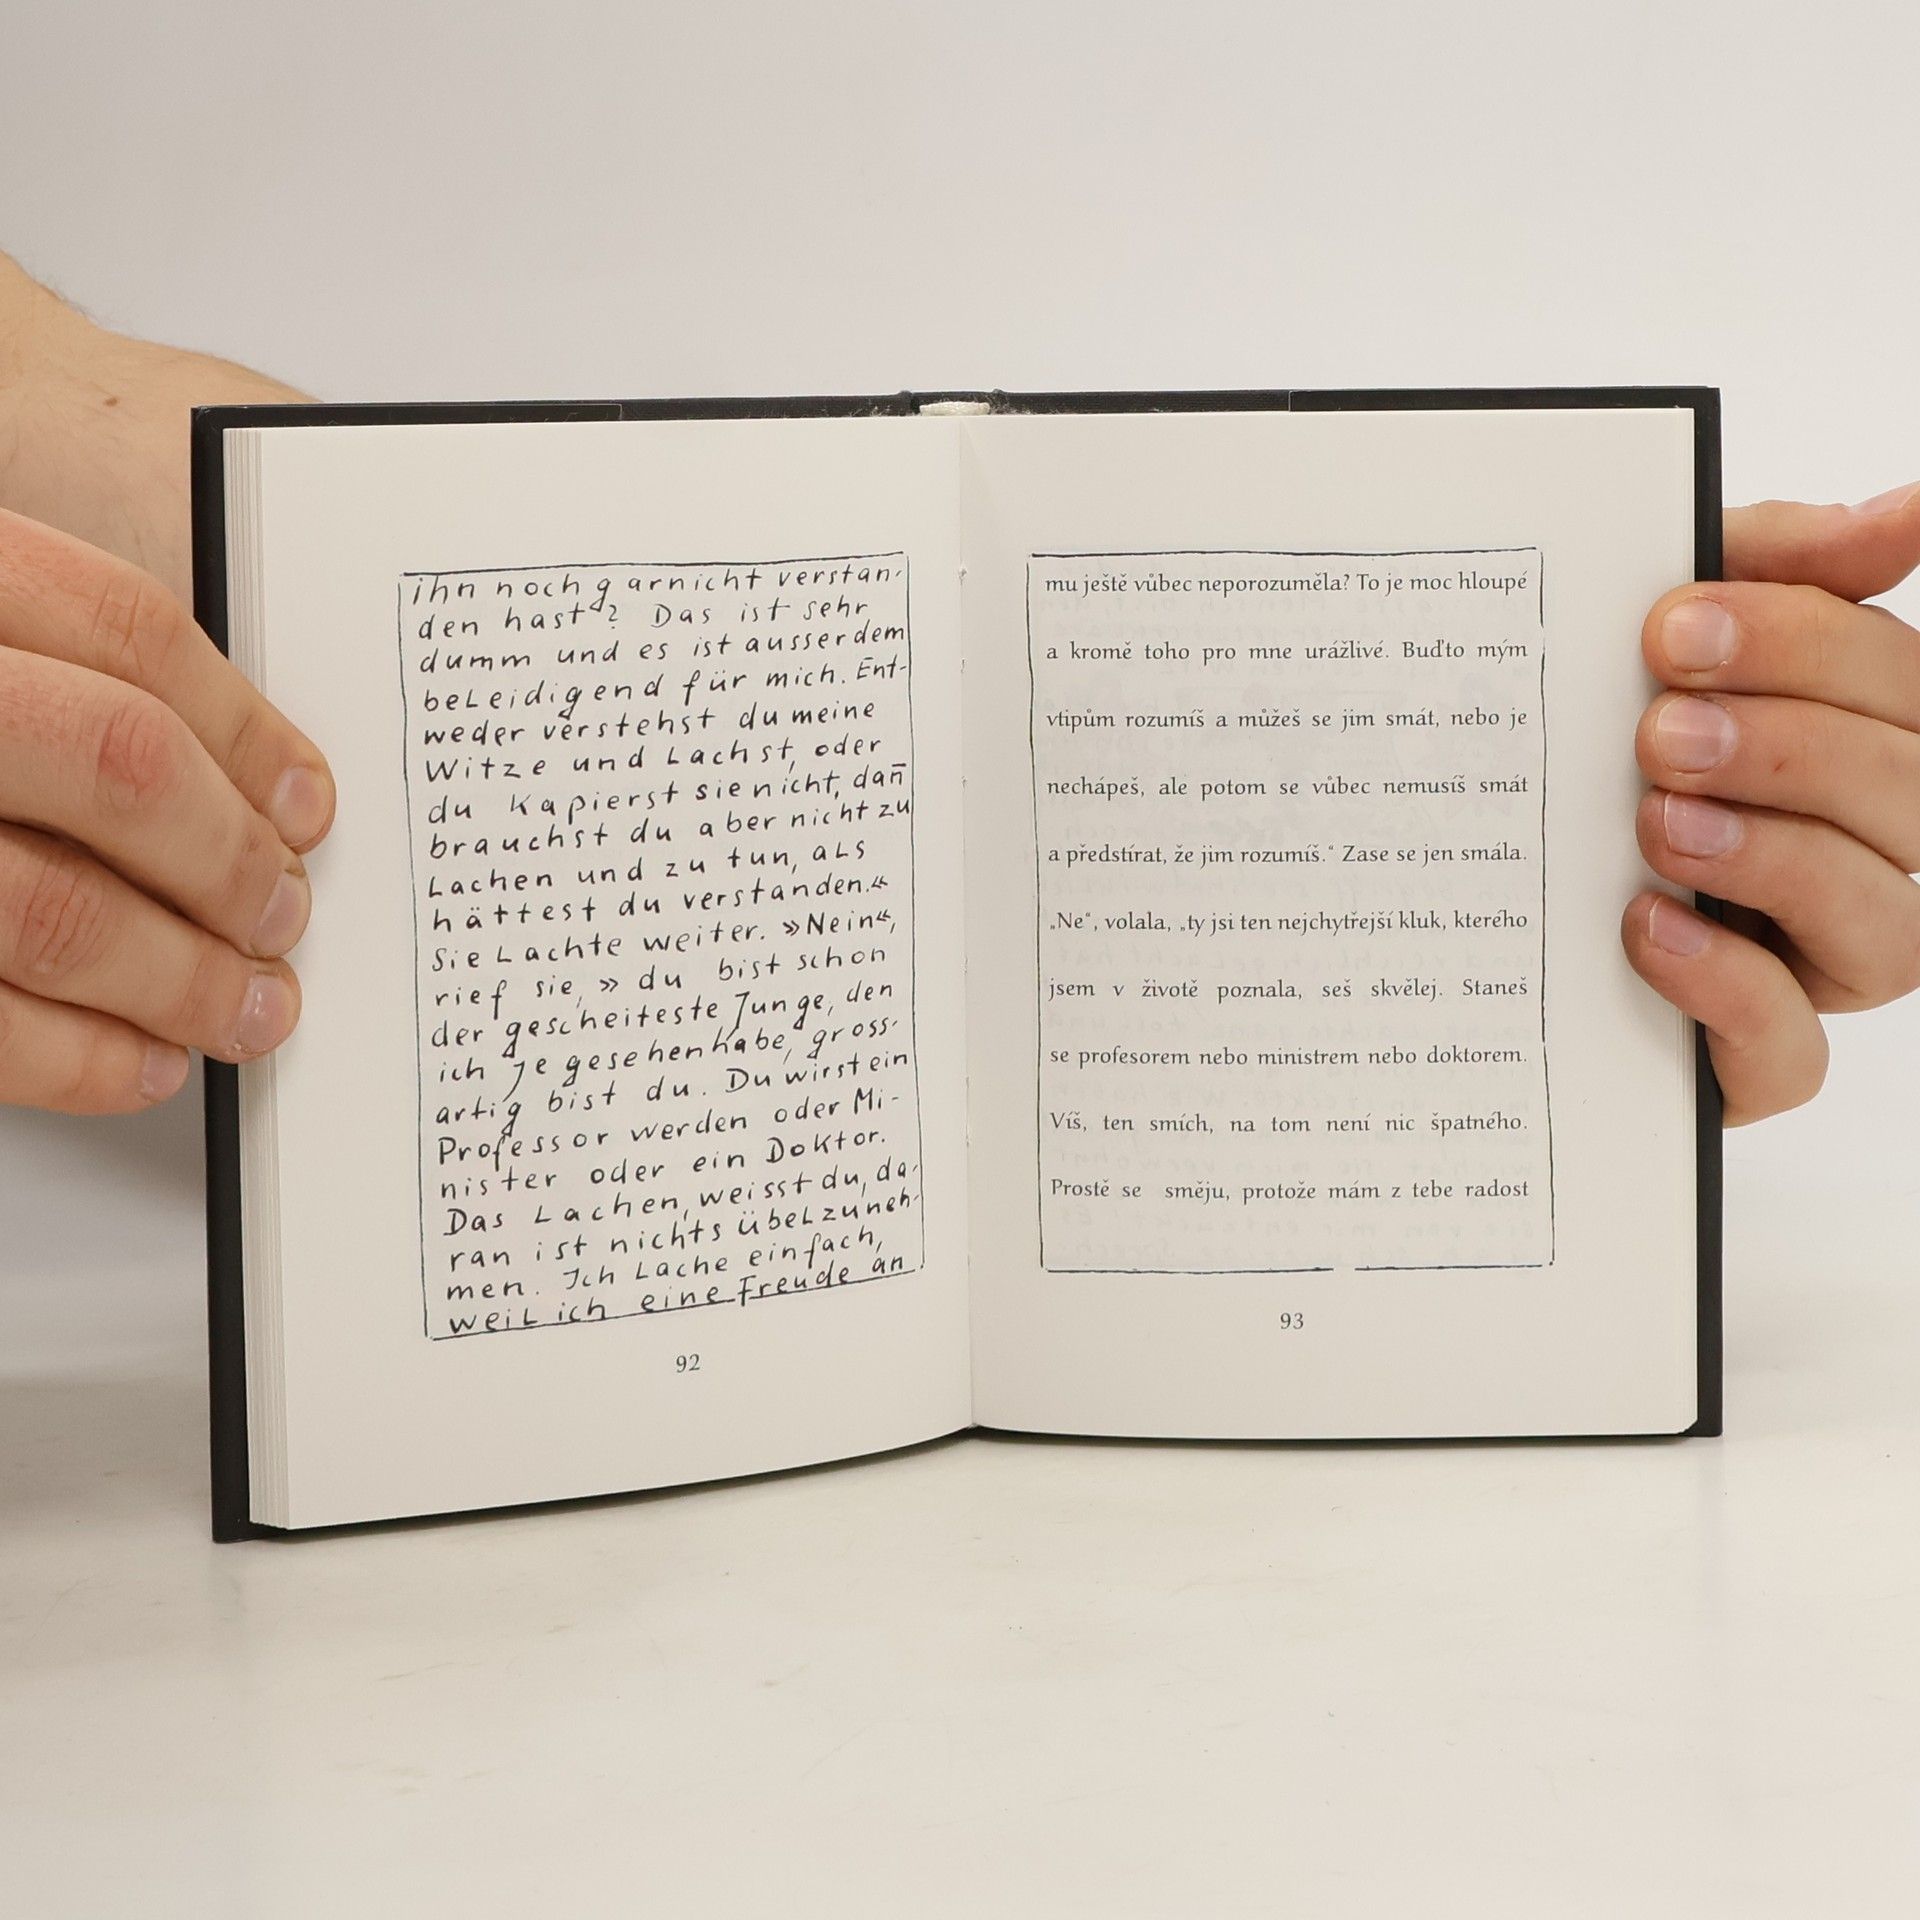 ihn noch garnicht verstan-
den hast? Das ist sehr
dumm und es ist ausserdem
beleidigend für mich. Ent-
weder verstehst du meine
Witze und lachst, oder
du kapierst sie nicht, dan̄
brauchst du aber nicht zu
lachen und zu tun, als
hättest du verstanden.«
Sie lachte weiter. »Nein«,
rief sie, »du bist schon
der gescheiteste Junge, den
ich je gesehen habe, gross-
artig bist du. Du wirst ein
Professor werden oder Mi-
nister oder ein Doktor.
Das Lachen, weisst du, da-
ran ist nichts übelzuneh-
men. Ich lache einfach,
weil ich eine Freude an
92
mu ještě vůbec neporozuměla? To je moc hloupé
a kromě toho pro mne urážlivé. Buďto mým
vtipům rozumíš a můžeš se jim smát, nebo je
nechápeš, ale potom se vůbec nemusíš smát
a předstírat, že jim rozumíš.“ Zase se jen smála.
„Ne“, volala, „ty jsi ten nejchytřejší kluk, kterého
jsem v životě poznala, seš skvělej. Staneš
se profesorem nebo ministrem nebo doktorem.
Víš, ten smích, na tom není nic špatného.
Prostě se směju, protože mám z tebe radost
93